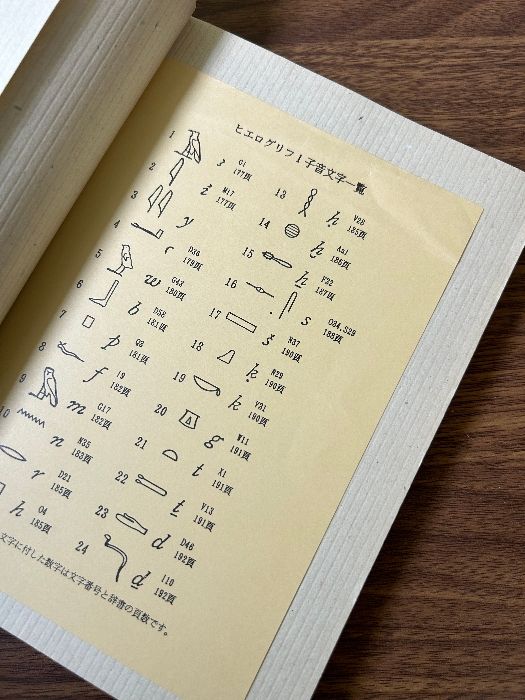 ヒエログリフ1子音文字一覧
1 ꜣ G1 177頁
2 i M17 177頁
3 y
4 ꜥ D36 179頁
5 w G43 180頁
6 b D58 181頁
7 p Q3 181頁
8 f I9 182頁
9 m G17 182頁
10 n N35 183頁
r D21 185頁
h O4 185頁
13 ḥ V28 185頁
14 ḫ Aa1 186頁
15 ẖ F32 187頁
16 s O34,S29 188頁
17 š N37 190頁
18 ḳ N29 190頁
19 k V31 190頁
20 g W11 191頁
21 t X1 191頁
22 ṯ V13 191頁
23 d D46 192頁
24 ḏ I10 192頁
文字に付した数字は文字番号と辞書の頁数です。